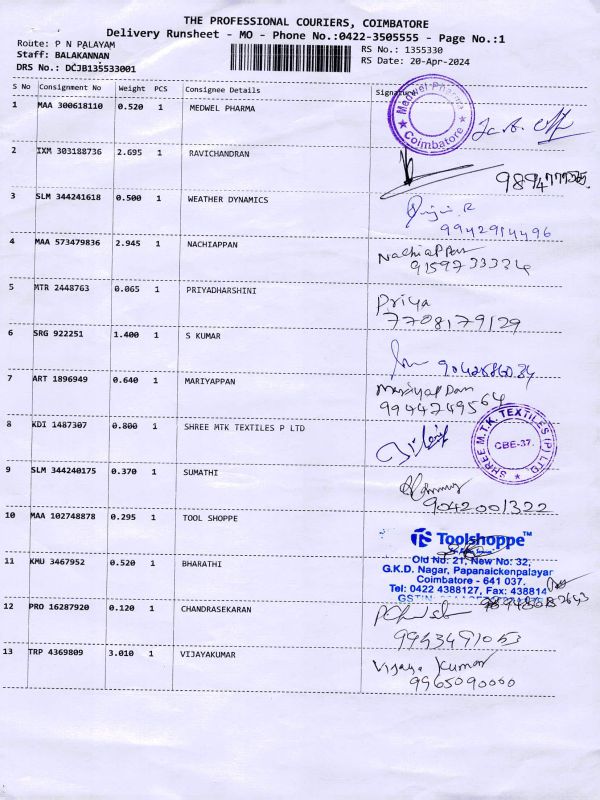 THE PROFESSIONAL COURIERS, COIMBATORE
Delivery Runsheet - MO - Phone No.:0422-3505555 - Page No.:1
Route: P N PALAYAM
Staff: BALAKANNAN
DRS No.: DCJB135533001
RS No.: 1355330
RS Date: 20-Apr-2024
S No Consignment No Weight PCS Consignee Details Signature
1 MAA 300618110 0.520 1 MEDWEL PHARMA
Medwel Pharma
★ Coimbatore ★
2 IXM 303188736 2.695 1 RAVICHANDRAN
3 SLM 344241618 0.500 1 WEATHER DYNAMICS
9942914496
4 MAA 573479836 2.945 1 NACHIAPPAN
Nachiappan
9159733334
5 MTR 2448763 0.065 1 PRIYADHARSHINI
Priya
7708179129
6 SRG 922251 1.400 1 S KUMAR
7 ART 1896949 0.640 1 MARIYAPPAN
Mariyappan
9944749564
8 KDI 1487307 0.800 1 SHREE MTK TEXTILES P LTD
SHREE M.T.K. TEXTILES (P) LTD.
CBE-37.
9 SLM 344240175 0.370 1 SUMATHI
9042001322
10 MAA 102748878 0.295 1 TOOL SHOPPE
TS Toolshoppe™
Old No: 21, New No: 32,
G.K.D. Nagar, Papanaickenpalayar
Coimbatore - 641 037.
Tel: 0422 4388127, Fax: 438814
11 KMU 3467952 0.520 1 BHARATHI
12 PRO 16287920 0.120 1 CHANDRASEKARAN
9943491053
13 TRP 4369809 3.010 1 VIJAYAKUMAR
Vijaya Kumar
9965090000